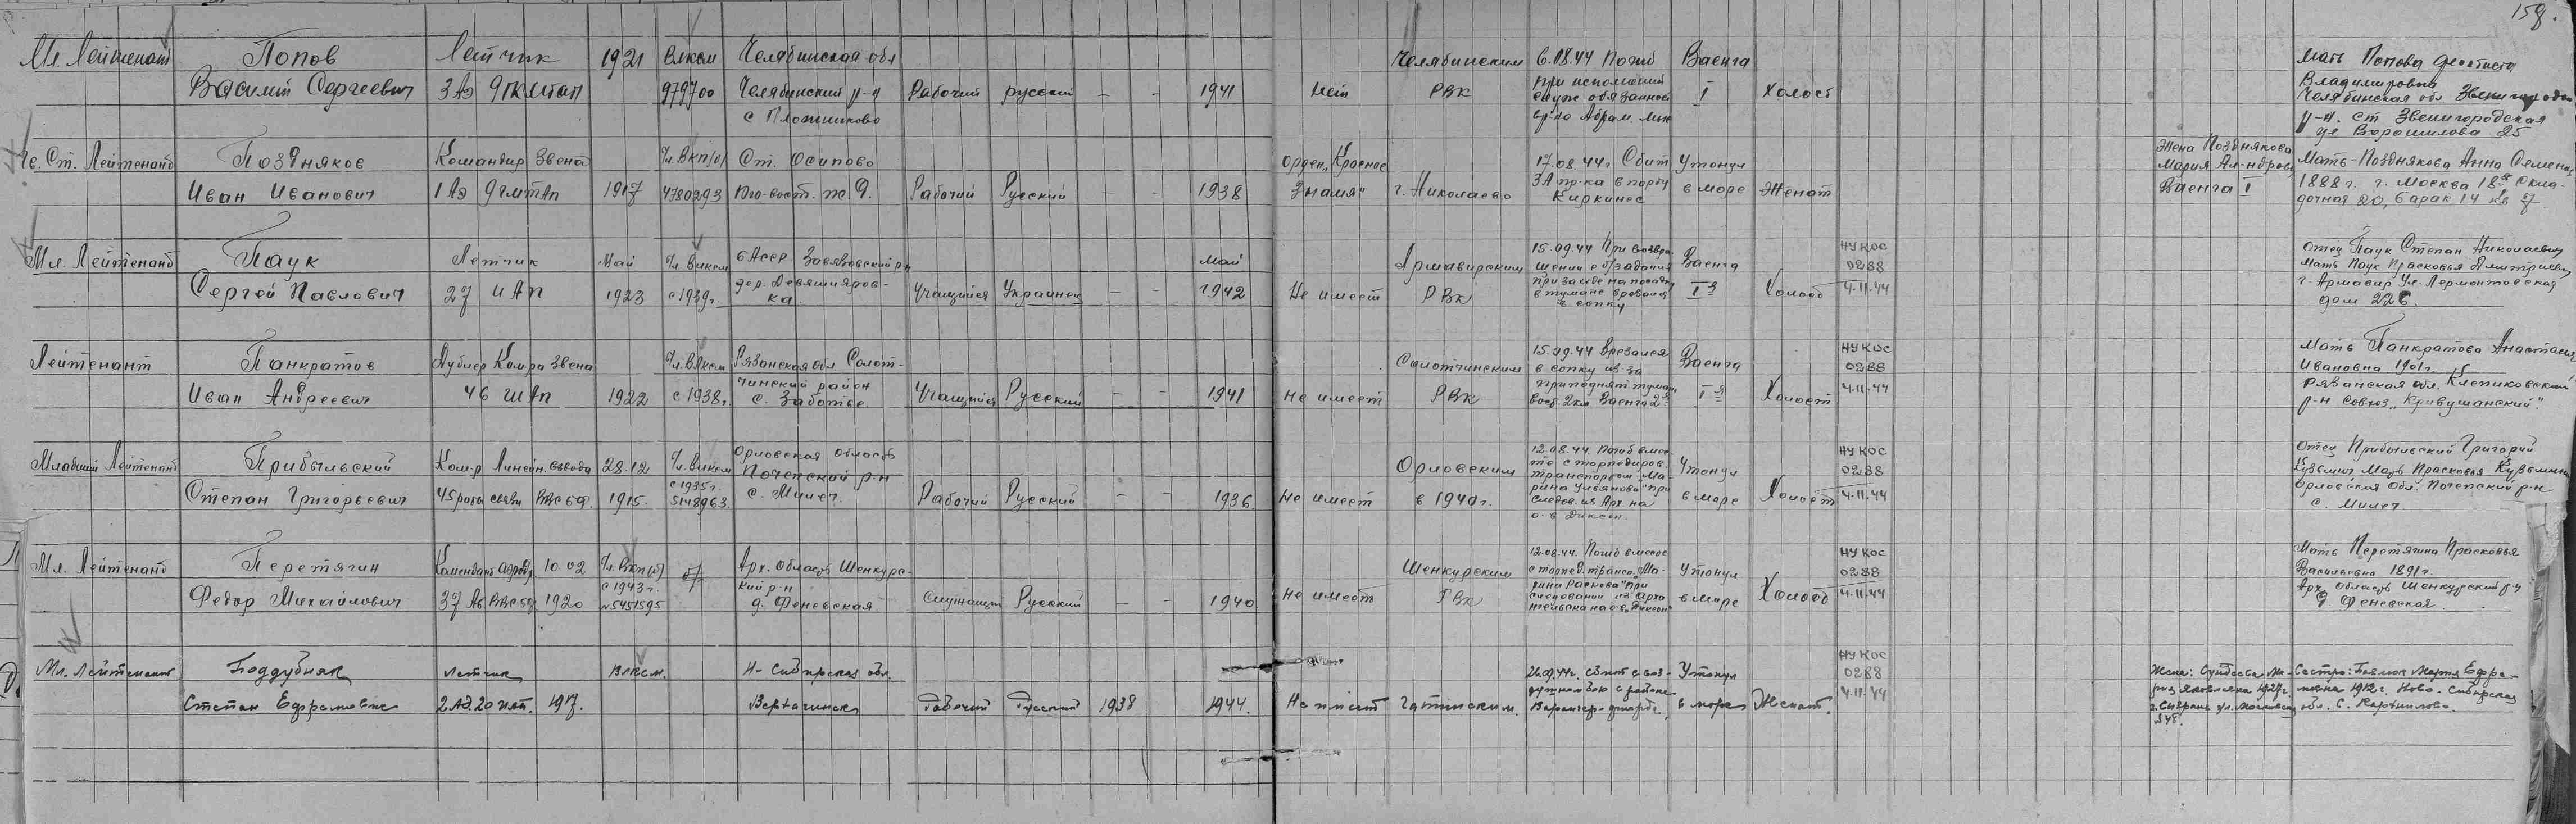 159.
Мл. Лейтенант Попов Летчик 1921 Влксм Челябинская обл Челябинским 6.08.44 Погиб Ваенга Мать Попова
Василий Сергеевич 3 Аэ 9ГКМТАП 979700 Челябинский р-н Рабочий русский - - 1941 Нет РВК при исполнении I Холост Владимировна
с Плотниково служ обязаннос Челябинская обл
вр-но Абрам. мыс р-н. ст Звенигородская
ул Ворошилова 25
Ст. Лейтенант Поздняков Командир Звена Чл. Вкп(б) Ст. Осипово Орден „Красное 17.08.44г Сбит Утонул Жена Позднякова Мать-Позднякова Анна Семенов
Иван Иванович 1 Аэ 9 гмтАп 1917 4780293 Юго-вост. ж.д. Рабочий Русский - - 1938 Знамя" г. Николаево ЗА пр-ка в порту в море Женат Мария Ал-ндровн 1888 г. г. Москва 18я
Киркинес Ваенга I дочная 20, барак 14 кв 7
Мл. Лейтенант Паук Летчик Май Чл. Влксм БАССР р-н Май Армавирским 15.09.44 При возвра- Ваенга НУКОС Отец Паук Степан Николаевич
Сергей Павлович 27 ИАП 1923 с 1939г. дер. Учащийся Украинец - - 1942 Не имеет РВК щении с б/задания I я Холост 0288 Мать Паук Прасковья Дмитриевн
ка при заходе на посадку 4-11-44 г. Армавир ул. Лермонтовская
в тумане врезался дом 226.
в сопку
Лейтенант Панкратов Дублер Ком-ра Звена Чл. Влксм Рязанская обл. Солот- Солотчинским 15.09.44 Врезался Ваенга НУКОС Мать Панкратова Анастасия
Иван Андреевич 46 ШАп 1922 с 1938г чинский район Учащийся Русский - - 1941 Не имеет РВК в сопку из за I-я Холост 0288 Ивановна 1901г.
с. Заботье туман 4-11-44 Рязанская обл. Клепиковский
2км Ваенга 2я р-н совхоз „Кривушанский".
Младший Лейтенант Прибыльский Ком-р Линейн. взвода 28.12 Чл. Влксм Орловская область Орловским 12.08.44. Погиб вмес- Утонул НУКОС Отец Прибыльский Григорий
Степан Григорьевич 45 рота связи ВВС БФ 1915. с 1935г Почепский р-н Рабочий Русский - - 1936. Не имеет в 1940г. те с торпедиров. в море Холост 0288 Кузьмич Мать Прасковья Кузьминич
5148963 с. Милеч. транспортом „Ма- 4-11-44 Орловская Обл. Почепский р-н
рина Ульянова" при с. Милеч.
следов. из Арх. на
о-в Диксон.
Мл. Лейтенант Перетягин Комендант аэродр. 10.02 Чл. Вкп(б) Арх. Область Шенкурс- Шенкурским 12.08.44. Погиб вместе Утонул НУКОС Мать Перетягина Прасковья
Федор Михайлович 37 Аб. ВВС БФ 1920 с 1943г. кий р-н Служащий Русский - - 1940. Не имеет РВК с торпед. трансп. „Ма- в море Холост 0288 Васильевна 1891г.
№5451595 д. Феневская рина Раскова" при 4-11-44 Арх. Область Шенкурский р-н
следовании из Арха д. Феневская.
нгельска на о-в „Диксон"
Мл. Лейтенант Поддубняк летчик влксм. Н-Сибирская обл. 26.09.44г. сбит в воз- Утонул НУКОС Жена: Сестра: Мария Ефре-
Степан Ефремович 2 АЭ. 20 ИАП. 1917. Рабочий Русский 1938 1944. Не имеет душном бою в районе в море Женат. 0288 1927г. 1912 г. Ново-Сибирская
Варангер-фиорда 4-11-44 г. Сызрань ул. Московская обл. с.